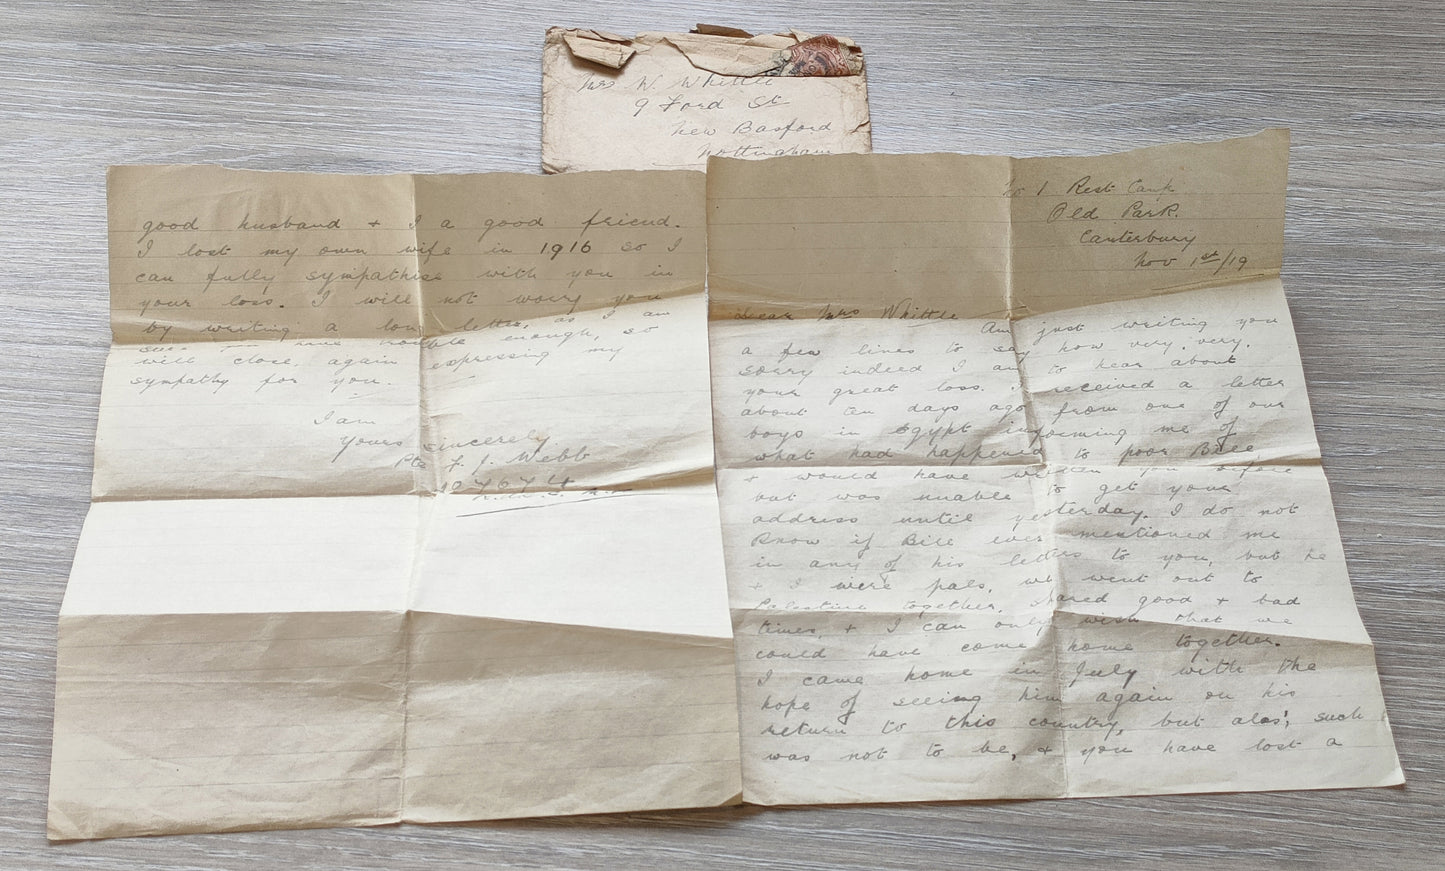 Mrs W. Whittle
9 Ford St
New Basford
Nottingham
No 1 Rest Camp
Old Park.
Canterbury
Nov 1st/19
Dear Mrs Whittle Am just writing you
a few lines to say how very, very,
sorry indeed I am to hear about
your great loss. I received a letter
about ten days ago from one of our
boys in Egypt informing me of
what had happened to poor Bill
+ would have written you before
but was unable to get your
address until yesterday. I do not
know if Bill ever mentioned me
in any of his letters to you, but he
+ I were pals, we went out to
Palestine together, shared good + bad
times, + I can only wish that we
could have come home together.
I came home in July with the
hope of seeing him again on his
return to this country, but alas, such
was not to be, + you have lost a
good husband + I a good friend.
I lost my own wife in 1916 so I
can fully sympathise with you in
your loss. I will not worry you
by writing a long letter, as I am
sure you have trouble enough, so
will close, again expressing my
sympathy for you.
I am
yours sincerely
Pte F. J. Webb